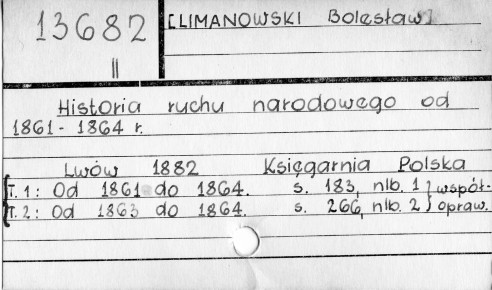 13682
II
[LIMANOWSKI Bolesław]
Historia ruchu narodowego od
1861 - 1864 r.
Lwów 1882 Księgarnia Polska
T. 1: Od 1861 do 1864. s. 183, nlb. 1 } współ-
T. 2: Od 1863 do 1864. s. 266, nlb. 2 } opraw.